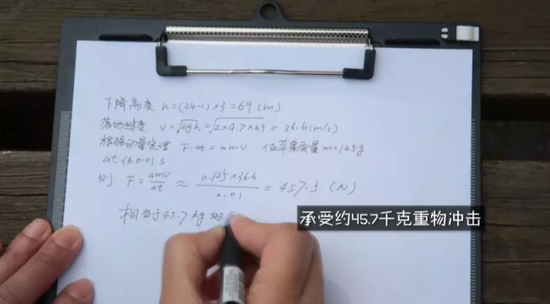 下降高度 h=(24-1)×3=69(m)
落地速度 v=√2gh=√2×9.7×69=36.6(m/s)
根据动量定理 F·Δt=Δmv 估苹果质量m=125g
Δt取0.01s
则 F=Δmv/Δt≈0.125×36.6/0.01=457.5(N)
相当于45.7kg的
承受约45.7千克重物冲击